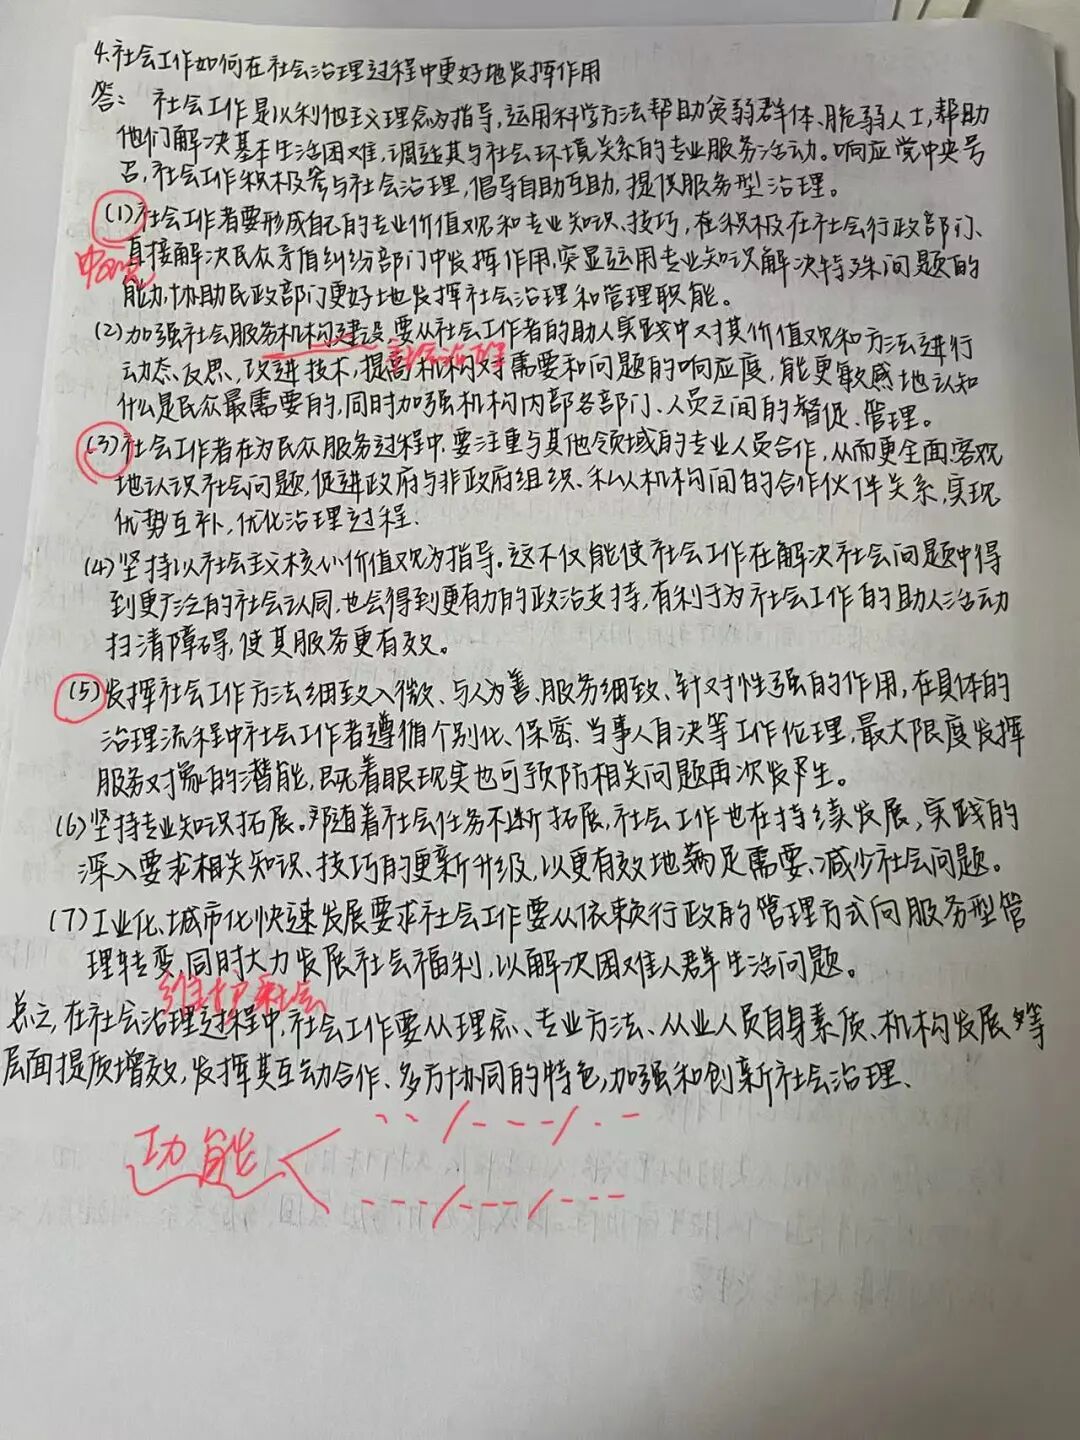 4.社会工作如何在社会治理过程中更好地发挥作用
答：社会工作是以利他主义理念为指导，运用科学方法帮助贫弱群体、脆弱人士，帮助
他们解决基本生活困难，调适其与社会环境关系的专业服务活动。响应党中央号
召，社会工作积极参与社会治理，倡导自助互助，提供服务型治理。
(1)社会工作者要形成自己的专业价值观和专业知识、技巧，在积极在社会行政部门、
直接解决民众矛盾纠纷部门中发挥作用，突显运用专业知识解决特殊问题的
能力，协助民政部门更好地发挥社会治理和管理职能。
(2)加强社会服务机构建设，要从社会工作者的助人实践中对其价值观和方法进行
社会治理
动态反思，改进技术，提高机构对需要和问题的响应度，能更敏感地认知
什么是民众最需要的，同时加强机构内部各部门、人员之间的督促、管理。
(3)社会工作者在为民众服务过程中，要注重与其他领域的专业人员合作，从而更全面客观
地认识社会问题，促进政府与非政府组织、私人机构间的合作伙伴关系，实现
优势互补，优化治理过程.
(4)坚持以社会主义核心价值观为指导。这不仅能使社会工作在解决社会问题中得
到更广泛的社会认同，也会得到更有力的政治支持，有利于为社会工作的助人活动
扫清障碍，使其服务更有效。
(5)发挥社会工作方法细致入微、与人为善、服务细致、针对性强的作用，在具体的
治理流程中社会工作者遵循个别化、保密、当事人自决等工作伦理，最大限度发挥
服务对象的潜能，既着眼现实也可预防相关问题再次发生。
(6)坚持专业知识拓展。随着社会任务不断拓展，社会工作也在持续发展，实践的
深入要求相关知识、技巧的更新升级，以更有效地满足需要、减少社会问题。
(7)工业化、城市化快速发展要求社会工作要从依赖行政的管理方式向服务型管
理转变，同时大力发展社会福利，以解决困难人群生活问题。
维护社会
总之，在社会治理过程中，社会工作要从理念、专业方法、从业人员自身素质、机构发展等
层面提质增效，发挥其互动合作、多方协同的特色，加强和创新社会治理、
功能